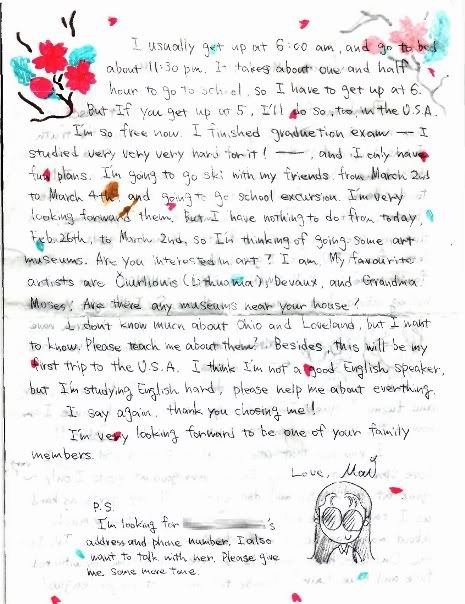 I usually get up at 6:00 am, and go to bed
about 11:30 pm. It takes about one and half
hour to go to school, so I have to get up at 6.
But If you get up at 5, I'll do so, too in the U.S.A.
I'm so free now. I finished graduction exam — I
studied very very very hard for it! —, and I only have
fun plans. I'm going to go ski with my friends from March 2nd
to March 4th, and going to go school excursion. I'm very
looking forward them. But I have nothing to do from today,
Feb. 26th, to March 2nd, so I'm thinking of going some art
museums. Are you interested in art? I am. My favourite
artists are Čiurlionis (Lithuania), Devaux, and Grandma
Moses! Are there any museums near your house?
I don't know much about Ohio and Loveland, but I want
to know. Please teach me about them. Besides, this will be my
first trip to the U.S.A. I think I'm not a good English speaker,
but I'm studying English hard, please help me about everthing.
I say again, thank you chosing me!
I'm very looking forward to be one of your family
members.
Love,
P.S.
I'm looking for 's
address and phone number. I also
want to talk with her. Please give
me some more time.